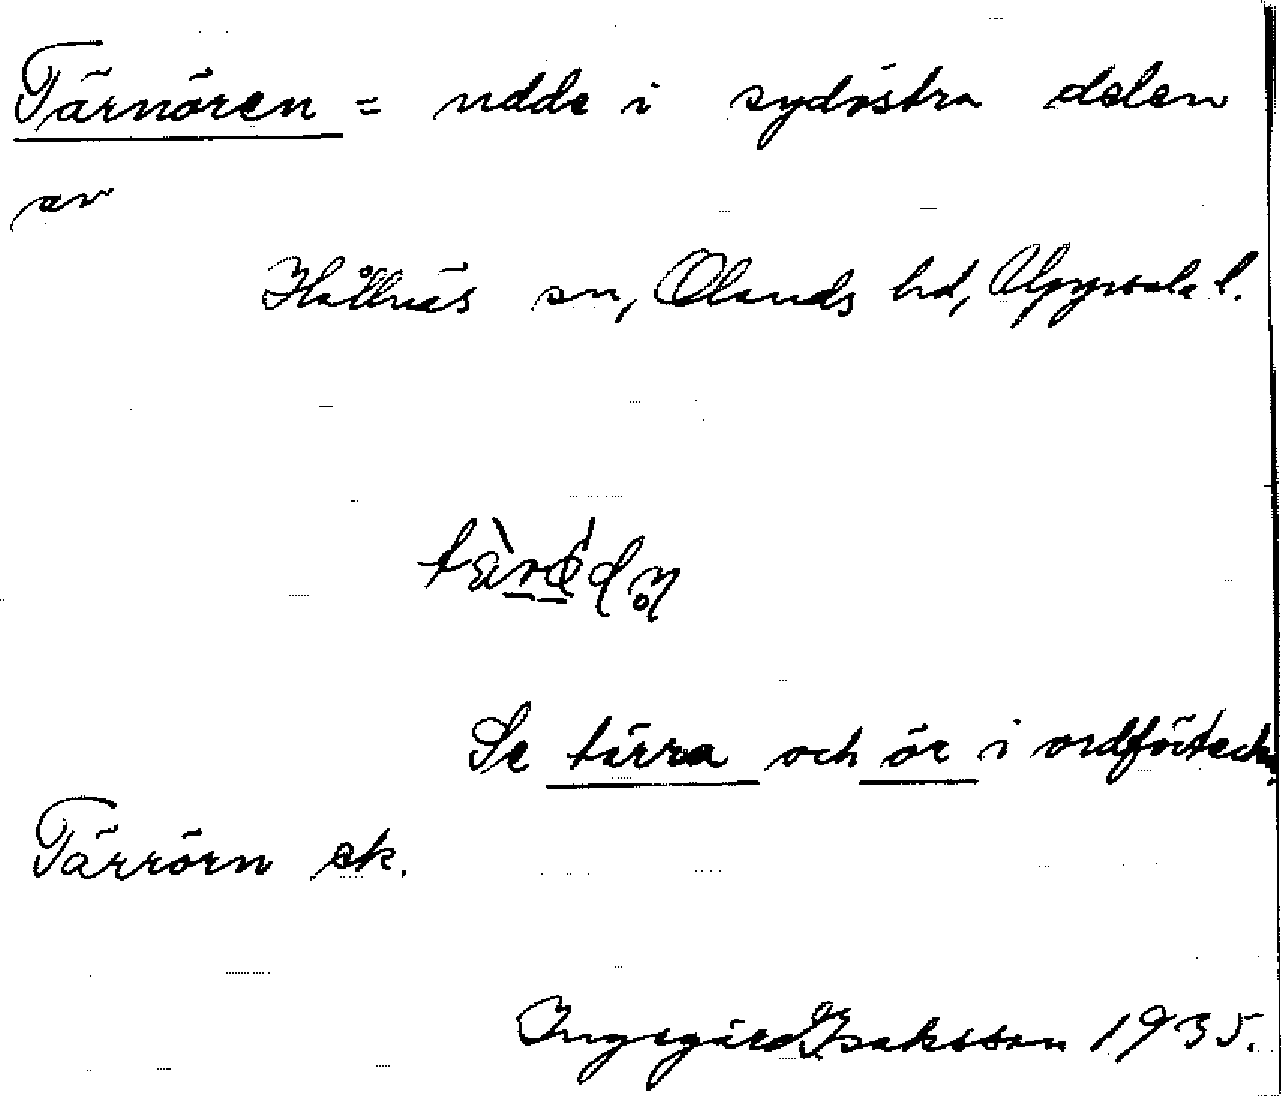 Tärnören = udde i sydöstra delen
av
Hållnäs sn, Olands hd, Uppsala l.
Se tärra och ör i ordförteckn.
Tärrörn ek.
Ingegärd Isaksson 1935.